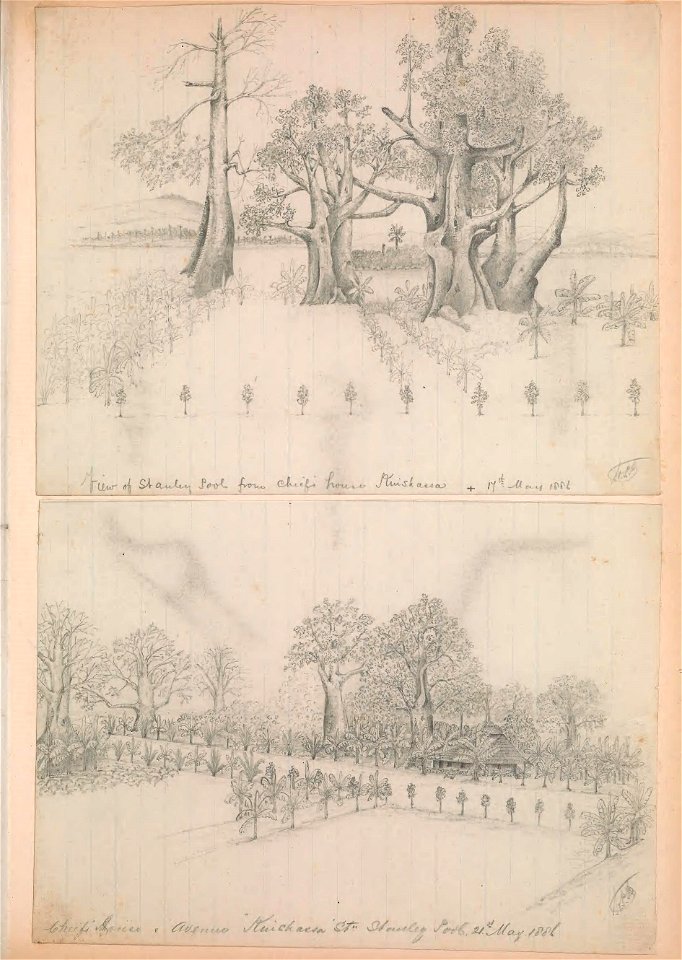 View of Stanley Pool from Chief's house Kinshassa + 17th May 1886
Chief's House & Avenue "Kinchassa" Stn Stanley Pool, 21st May 1886